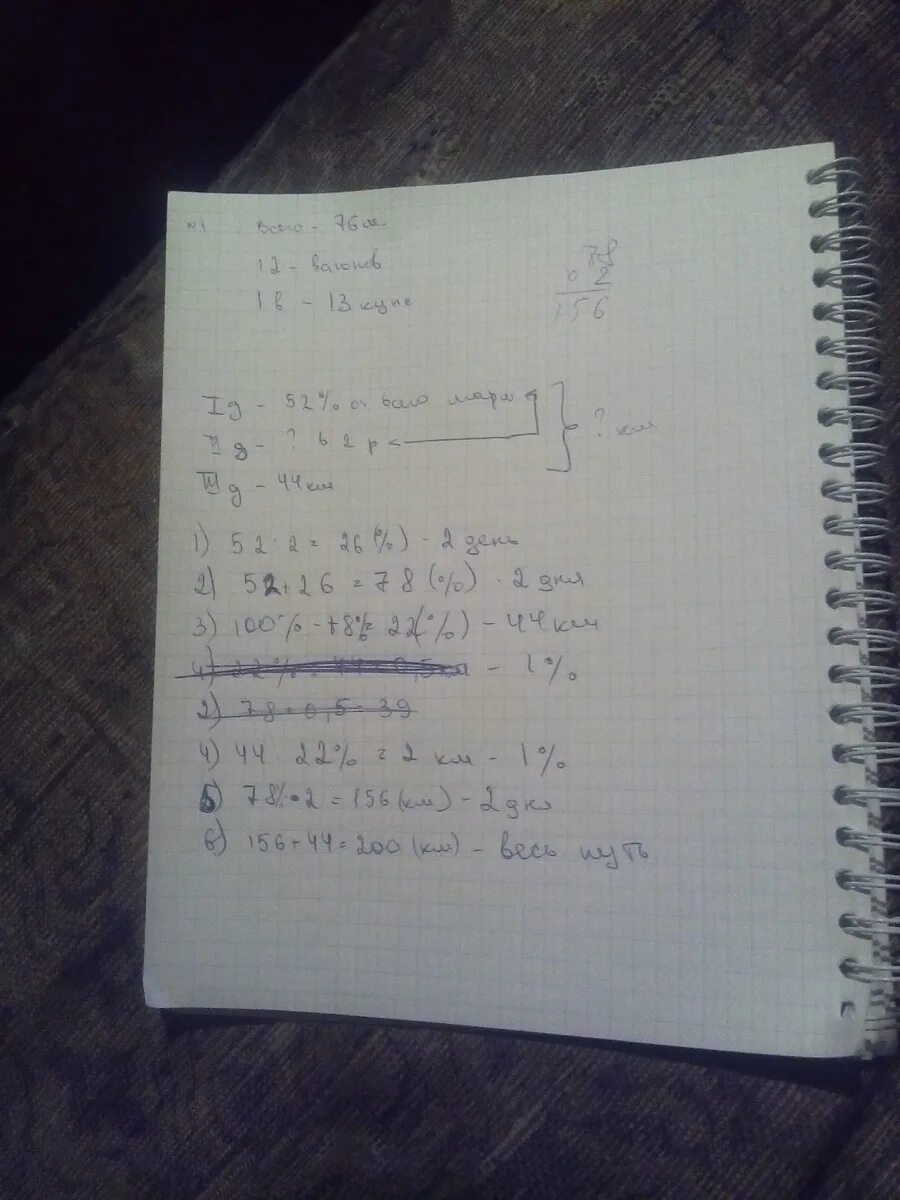 №1 Всего - 76 м
12 - вагонов
1 в - 13 купе
78
0 2
156
I д - 52% от всего марш
II д - ? в 2 р <
? км
III д - 44 км
1) 52 : 2 = 26 (%) - 2 день
2) 52 + 26 = 78 (%) - 2 дня
3) 100% - 78% = 22 (%) - 44 км
4) 22% : 44 = 0,5 км - 1%
2) 78 · 0,5 = 39
4) 44 : 22% = 2 км - 1%
5) 78% · 2 = 156 (км) - 2 дня
6) 156 + 44 = 200 (км) - весь путь